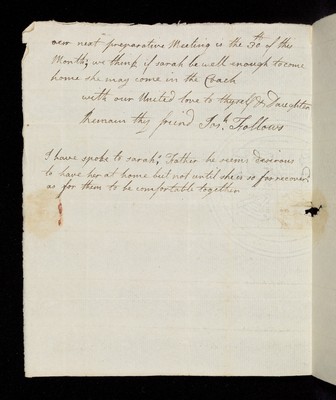 our next preparative Meeting is the 30th of this
Month; we think if sarah be well enough to come
home she may come in the Coach
with our United love to thyself & Daughters
I remain thy friend Josh Fallows
I have spoke to sarahs Father he seems desirous
to have her at home but not until she is so far recover'd
as for them to be comfortable together